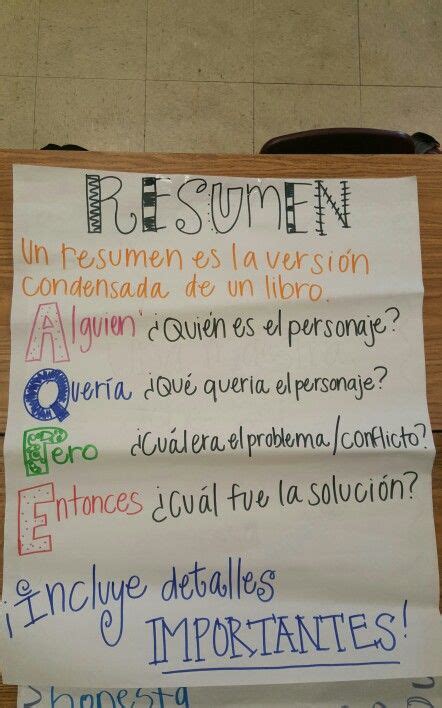 RESUMEN
Un resumen es la versión
condensada de un libro.
Alguien ¿Quién es el personaje?
Quería ¿Qué queria el personaje?
Pero ¿Cuál era el problema/conflicto?
Entonces ¿Cuál fue la solución?
¡Incluye detalles
IMPORTANTES!
honesta